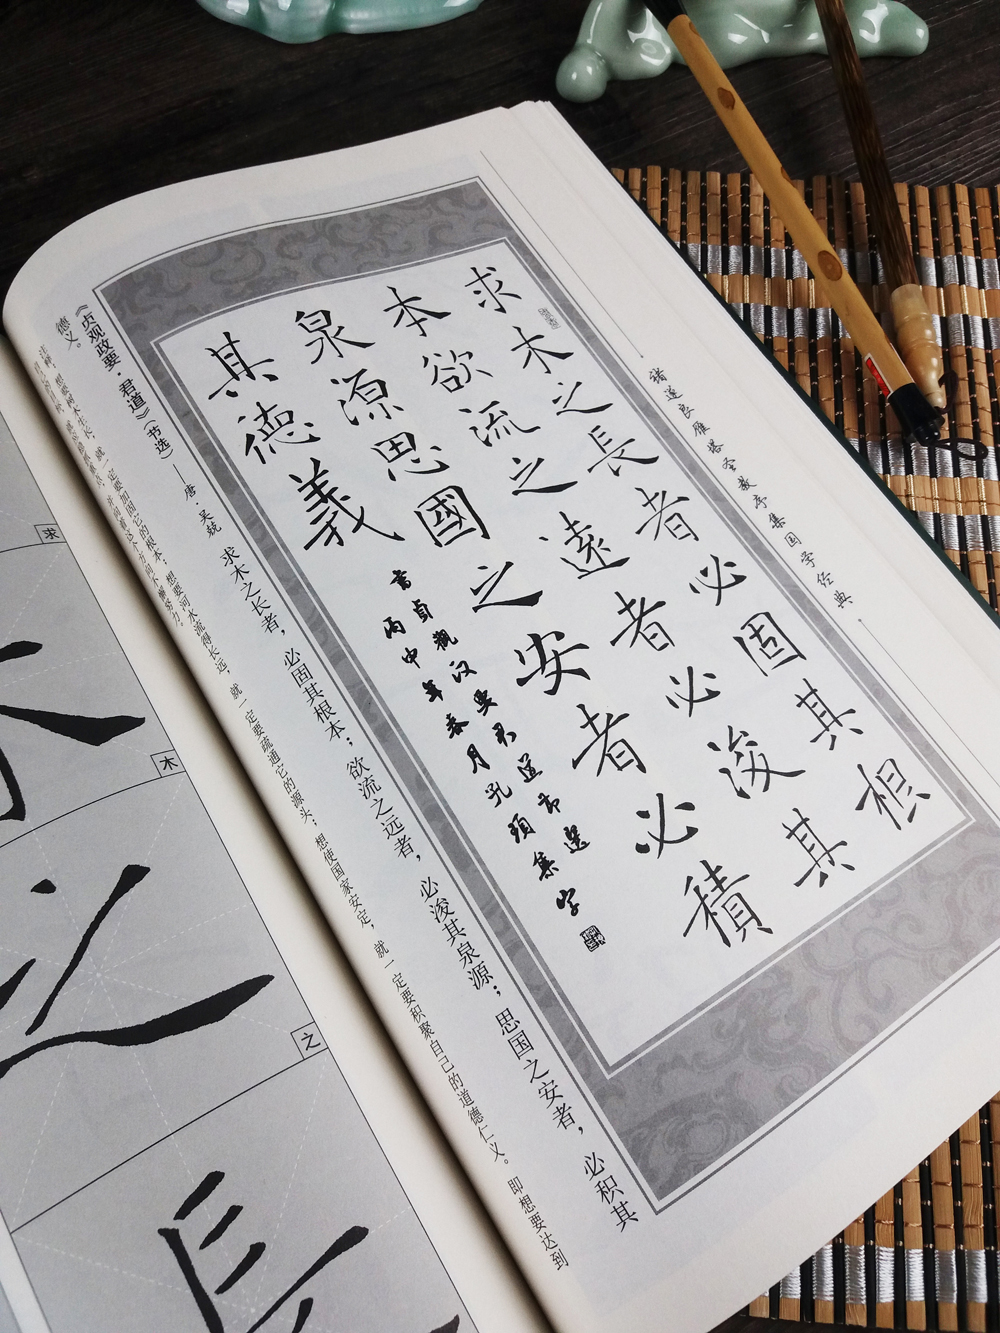 褚遂良雁塔圣教序集国学经典
求木之長者必固其根
本欲流之遠者必浚其
泉源思國之安者必積
其德義
書貞觀政要君道節選
丙申年春月孔頊集字
《贞观政要·君道》(书选)——唐·吴兢 求木之长者，必固其根本；欲流之远者，必浚其泉源；思国之安者，必积其
德义。
注释：想要树木生长，就一定要加固它的根本；想要河水流得长远，就一定要疏通它的源头；想使国家安定，就一定要积聚自己的道德仁义。即想要达到
并向着这个方向不懈努力。
求
木
木
之
之
長